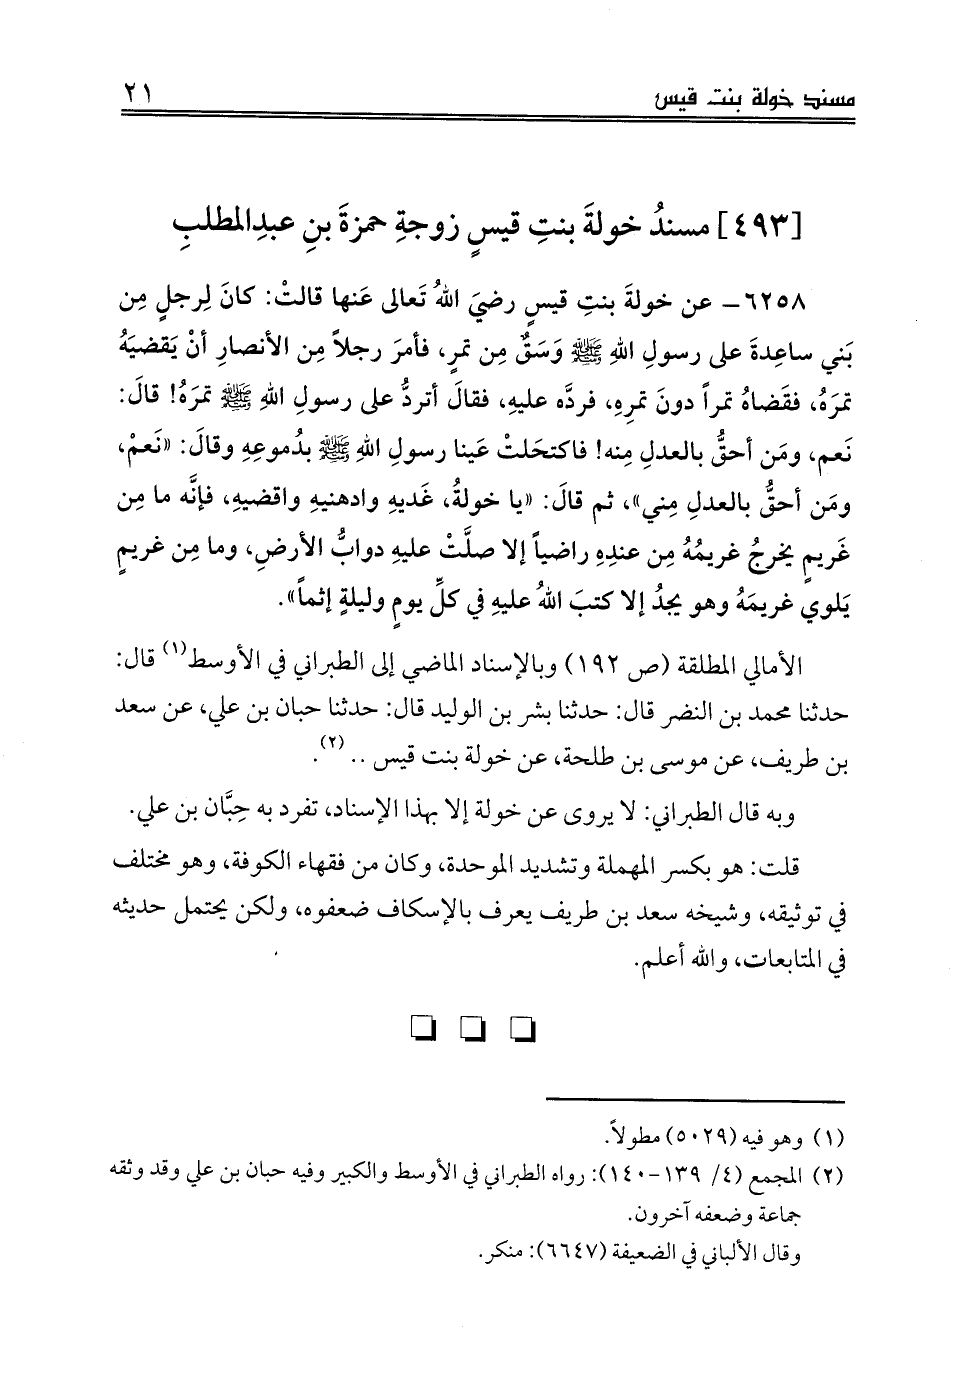 مسند خولة بنت قيس
٢١
[٤٩٣] مسندُ خولةَ بنتِ قيسٍ زوجةِ حمزةَ بنِ عبدِالمطلبِ
٦٢٥٨ـ عن خولةَ بنتِ قيسٍ رضيَ اللهُ تَعالى عَنها قالتْ: كانَ لِرجلٍ مِن
بَني ساعِدةَ على رسولِ اللهِ ﷺ وَسَقٌ مِن تمرٍ، فأمرَ رجلاً مِن الأنصارِ أنْ يَقضيَهُ
تمرَهُ، فقَضاهُ تمراً دونَ تمرِهِ، فردَّه عليهِ، فقالَ أتردُّ على رسولِ اللهِ ﷺ تمرَهُ! قالَ:
نَعم، ومَن أحقُّ بالعدلِ مِنه! فاكتحَلتْ عَينا رسولِ اللهِ ﷺ بدُموعِهِ وقالَ: «نَعمْ،
ومَن أحقُّ بالعدلِ مِني»، ثم قالَ: «يا خولةُ، غَديهِ وادهنيهِ واقضيهِ، فإنَّه ما مِن
غَريمٍ يخرجُ غريمُهُ مِن عندِهِ راضياً إلا صلَّتْ عليهِ دوابُّ الأرضِ، وما مِن غريمٍ
يَلوي غريمَهُ وهو يجدُ إلا كتبَ اللهُ عليهِ في كلِّ يومٍ وليلةٍ إثماً».
الأمالي المطلقة (ص ١٩٢) وبالإسناد الماضي إلى الطبراني في الأوسط(١) قال:
حدثنا محمد بن النضر قال: حدثنا بشر بن الوليد قال: حدثنا حبان بن علي، عن سعد
بن طريف، عن موسى بن طلحة، عن خولة بنت قيس .. (٢).
وبه قال الطبراني: لا يروى عن خولة إلا بهذا الإسناد، تفرد به حِبَّان بن علي.
قلت: هو بكسر المهملة وتشديد الموحدة، وكان من فقهاء الكوفة، وهو مختلف
في توثيقه، وشيخه سعد بن طريف يعرف بالإسكاف ضعفوه، ولكن يحتمل حديثه
في المتابعات، والله أعلم.
(١) وهو فيه (٥٠٢٩) مطولاً.
(٢) المجمع (٤/ ١٣٩-١٤٠): رواه الطبراني في الأوسط والكبير وفيه حبان بن علي وقد وثقه
جماعة وضعفه آخرون.
وقال الألباني في الضعيفة (٦٦٤٧): منكر.